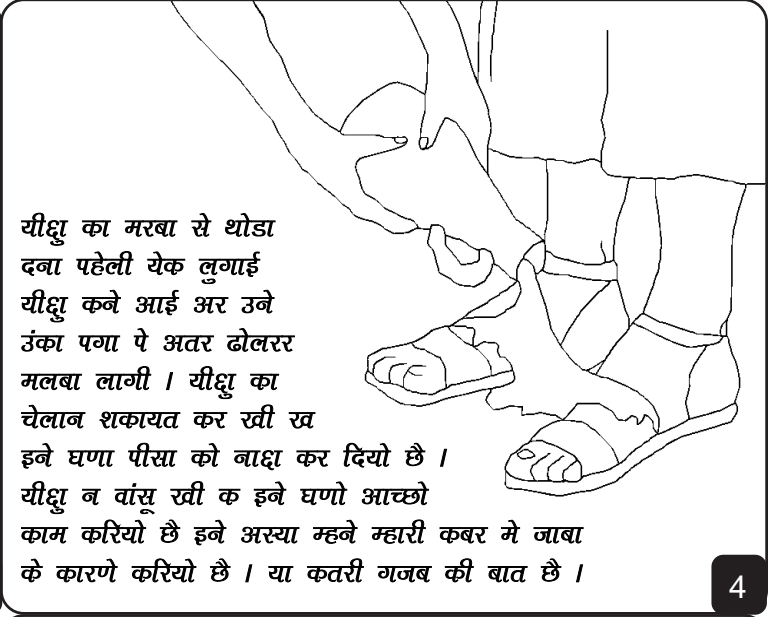 यीशु का मरबा से थोडा
दना पहेली येक लुगाई
यीशु कने आई अर उने
उंका पगा पे अतर ढोलरर
मलबा लागी । यीशु का
चेलान शकायत कर खी ख
इने घणा पीसा को नाश कर दियो छै ।
यीशु न वांसू खी क इने घणो आच्छो
काम करियो छै इने अस्या म्हने म्हारी कबर मे जाबा
के कारणे करियो छै । या कतरी गजब की बात छै ।
4